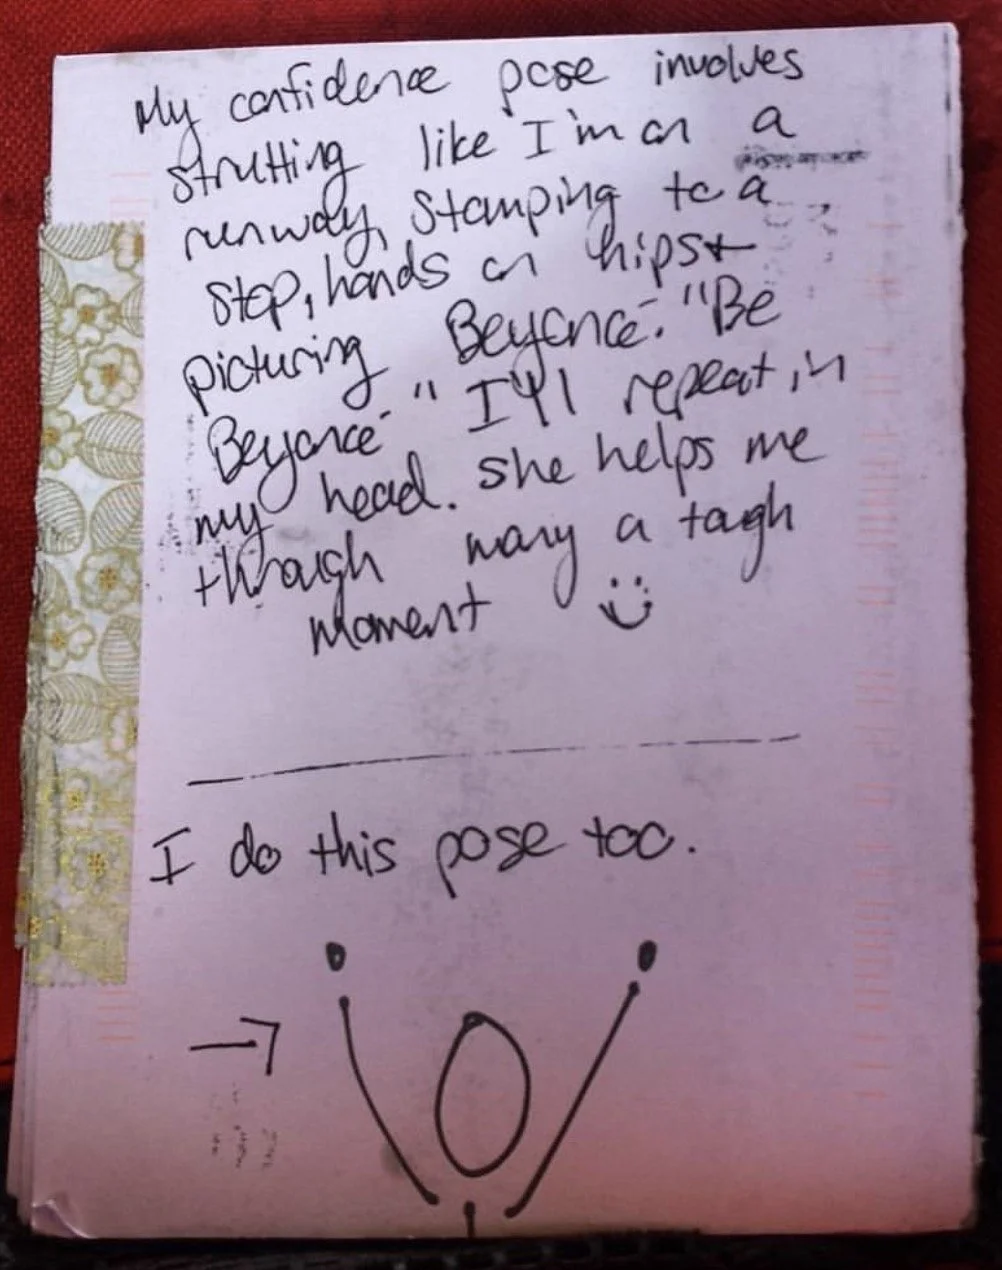 My confidence pose involves
strutting like I'm on a
runway, stamping to a
stop, hands on hips +
picturing Beyoncé. "Be
Beyoncé" I'll repeat in
my head. She helps me
through many a tough
moment
I do this pose too.